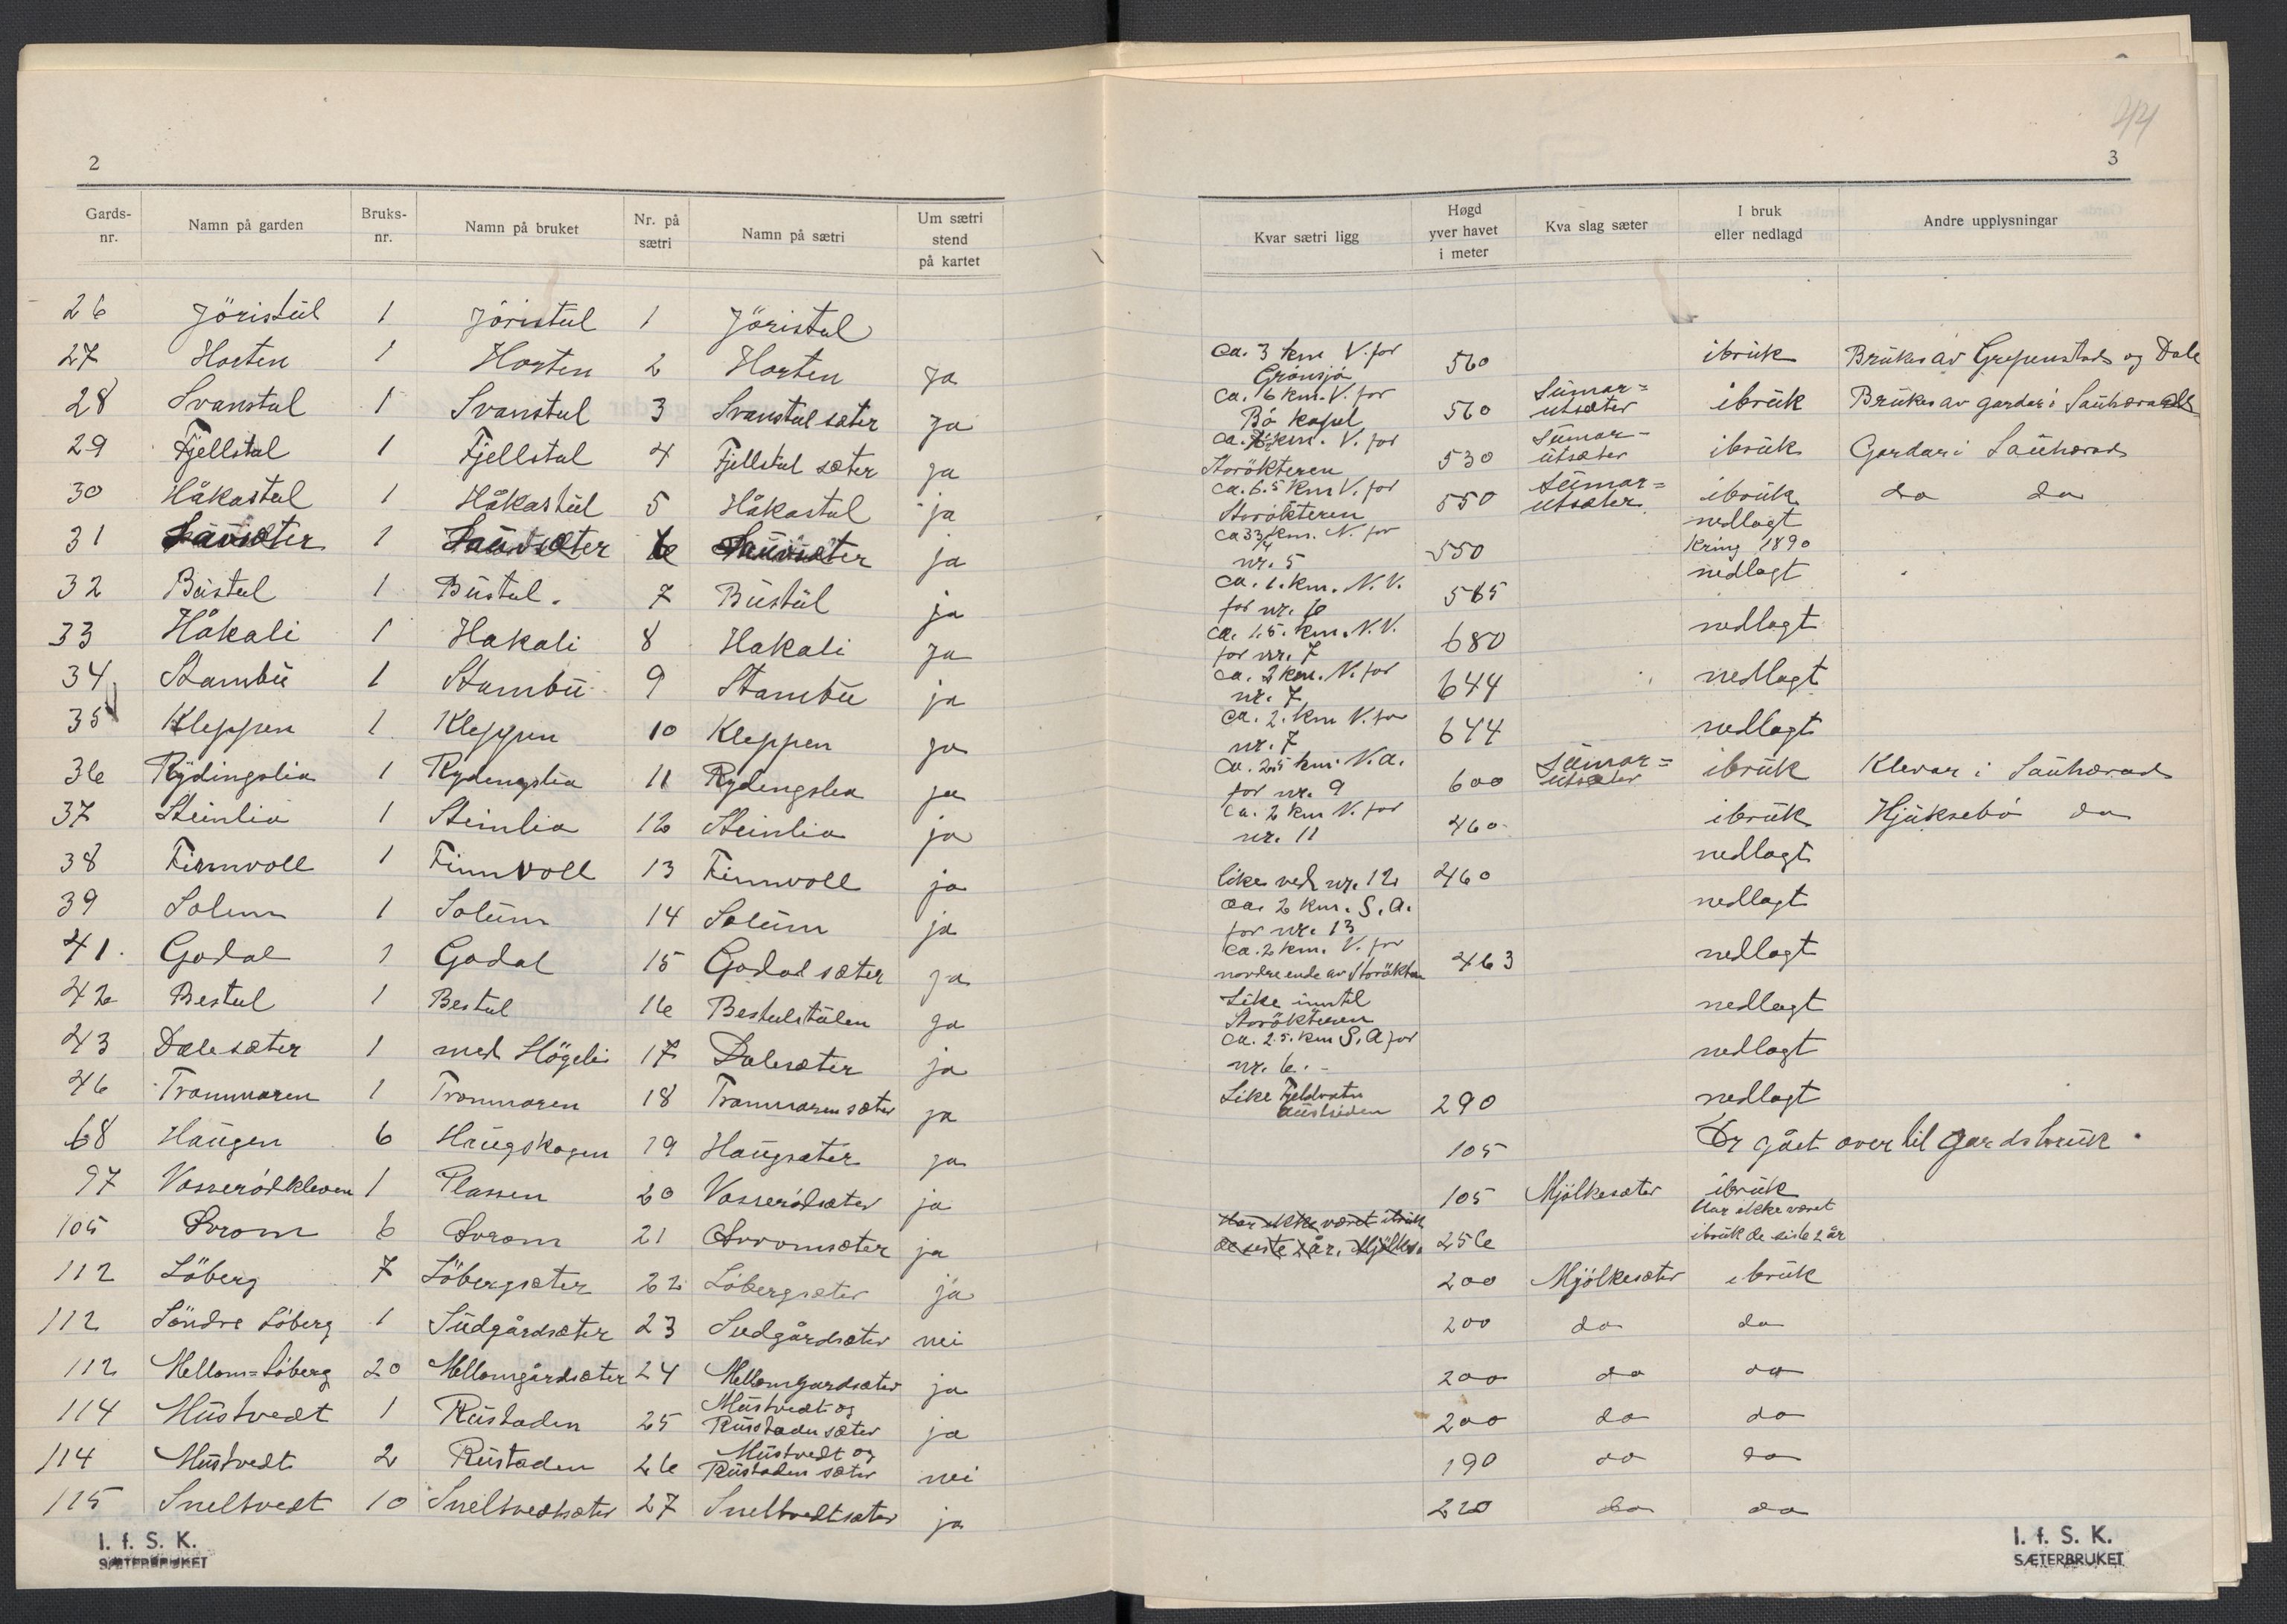 44
2
3
Gards-nr. Namn på garden Bruks-nr. Namn på bruket Nr. på sætri Namn på sætri Um sætri stend på kartet
26 Jöristul 1 Jöristul 1 Jöristul
27 Horten 1 Horten 2 Horten ja
28 Svanstul 1 Svanstul 3 Svanstul sæter ja
29 Fjellstul 1 Fjellstul 4 Fjellstul sæter ja
30 Håkastul 1 Håkastul 5 Håkastul ja
31 Sauvsæter 1 Sauvsæter 6 Sauvsæter ja
32 Bustul 1 Bustul. 7 Bustul ja
33 Håkali 1 Hakali 8 Hakali ja
34 Stambu 1 Stambu 9 Stambu ja
35 Kleppen 1 Kleppen 10 Kleppen ja
36 Rydingslia 1 Rydengslia 11 Rydengslia ja
37 Steinlia 1 Steinlia 12 Steinlia ja
38 Finnvoll 1 Finnvoll 13 Finnvoll ja
39 Solum 1 Solum 14 Solum ja
41. Godal 1 Godal 15 Godal sæter ja
42 Bestul 1 Bestul 16 Bestulstulen ja
43 Dalesæter 1 med Högeli 17 Dalesæter ja
46 Trommaren 1 Trommaren 18 Trommaren sæter ja
68 Haugen 6 Haugskogen 19 Haugsæter ja
97 Vasserödkleven 1 Plassen 20 Vasserödsæter ja
105 6 21 ja
112 Löberg 7 Löbergsæter 22 Löbergsæter ja
112 Söndre Löberg 1 Sudgårdsæter 23 Sudgårdsæter nei
112 Mellom=Löberg 20 Mellomgårdsæter 24 Mellomgardsæter ja
114 Mustvedt 1 Rustaden 25 Mustvedt og Rustaden sæter ja
114 Mustvedt 2 Rustaden 26 Mustvedt og Rustaden sæter nei
115 Sneltvedt 10 Sneltvedtsæter 27 Sneltvedtsæter ja
I. f. S. K.
SÆTERBRUKET
Kvar sætri ligg Høgd yver havet i meter Kva slag sæter I bruk eller nedlagd Andre upplysningar
ca. 3 km V. for Grönsjö 560 ibruk Brukes av Grepenstad og Dale
ca. 6 km. V. for Bö kapel 560 Sumar=utsæter ibruk Brukes av gardar i Sauherad
km. V. for Storökteren 530 Sumar-utsæter ibruk Gardar i Sauherad
ca. 6.5 km V. for Storökteren 550 Sumar=utsæter ibruk do do
km. N. for nr. 5 550 nedlagt kring 1890
ca. 1. km. N.V. for nr. 6 565 nedlagt
ca. 1.5. km. N.V. for nr. 7 680 nedlagt
ca. 2 km. N. for nr. 7 644 nedlagt
ca. 2. km V. for nr. 7 644 nedlagt
ca. 2.5 km. N.A. for nr. 9 600 Sumar=utsæter ibruk Klevar i Sauherad
ca. 2 km V. for nr. 11 460 ibruk Hjuksebö do
like ved nr. 12 460 nedlagt
ca. 2 km. S.A. for nr. 13 nedlagt
ca. 2 km. V. for nordre ende av Storökteren 463 nedlagt
Like inntil Storökteren nedlagt
ca. 2.5. km S.A for nr. 6. nedlagt
Like Fjeldvatn austsiden 290 nedlagt
105 Er gået over til gardsbruk.
105 Mjölkesæter ibruk
Har ikke været ibruk de siste 2 år. Mjölkes. 256 Har ikke været ibruk de siste 2 år
200 Mjölkesæter ibruk
200 do do
200 do do
200 do do
190 do do
220 do do
I. f. S. K.
SÆTERBRUKET